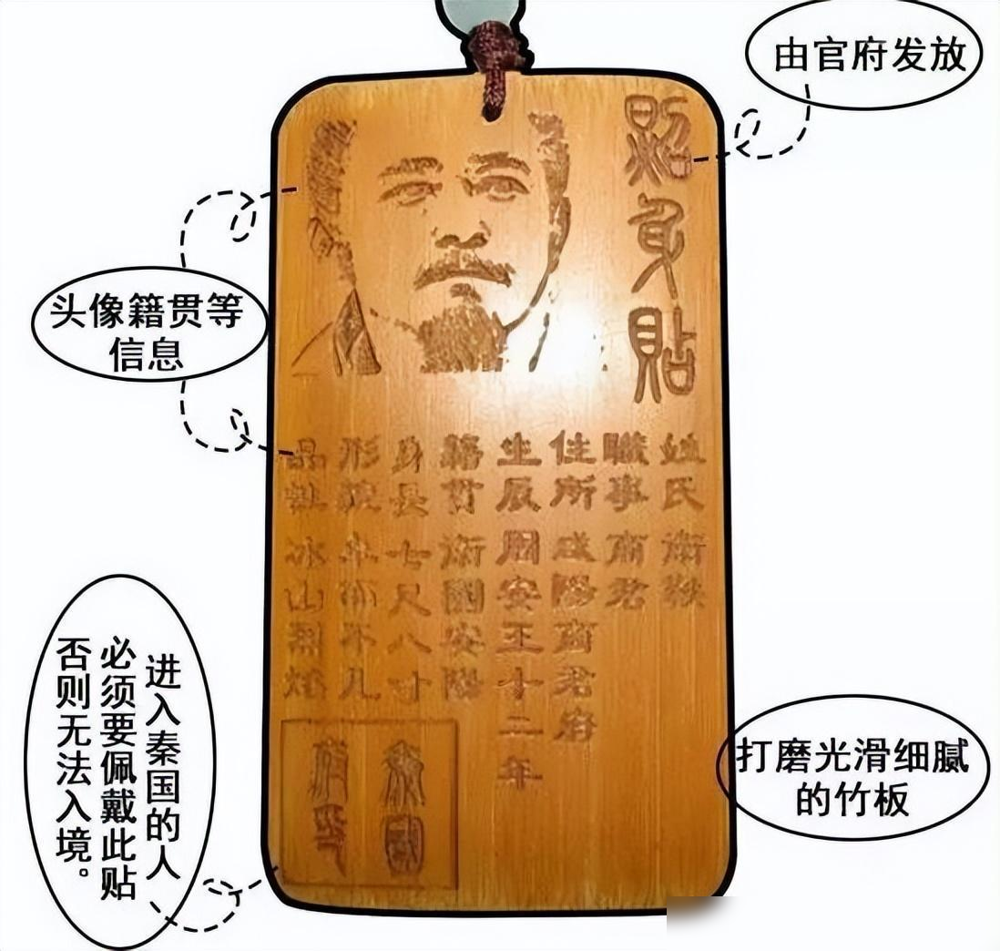 由官府发放
照身貼
头像籍贯等
信息
姓氏 衛鞅
職事 商君
住所 咸陽商君府
生辰 周安王十二年
籍貫 衛國安陽
身長 七尺八寸
形貌 不凡
品 冰山烈焰
秦國
进入秦国的人
必须要佩戴此贴
否则无法入境。
打磨光滑细腻
的竹板